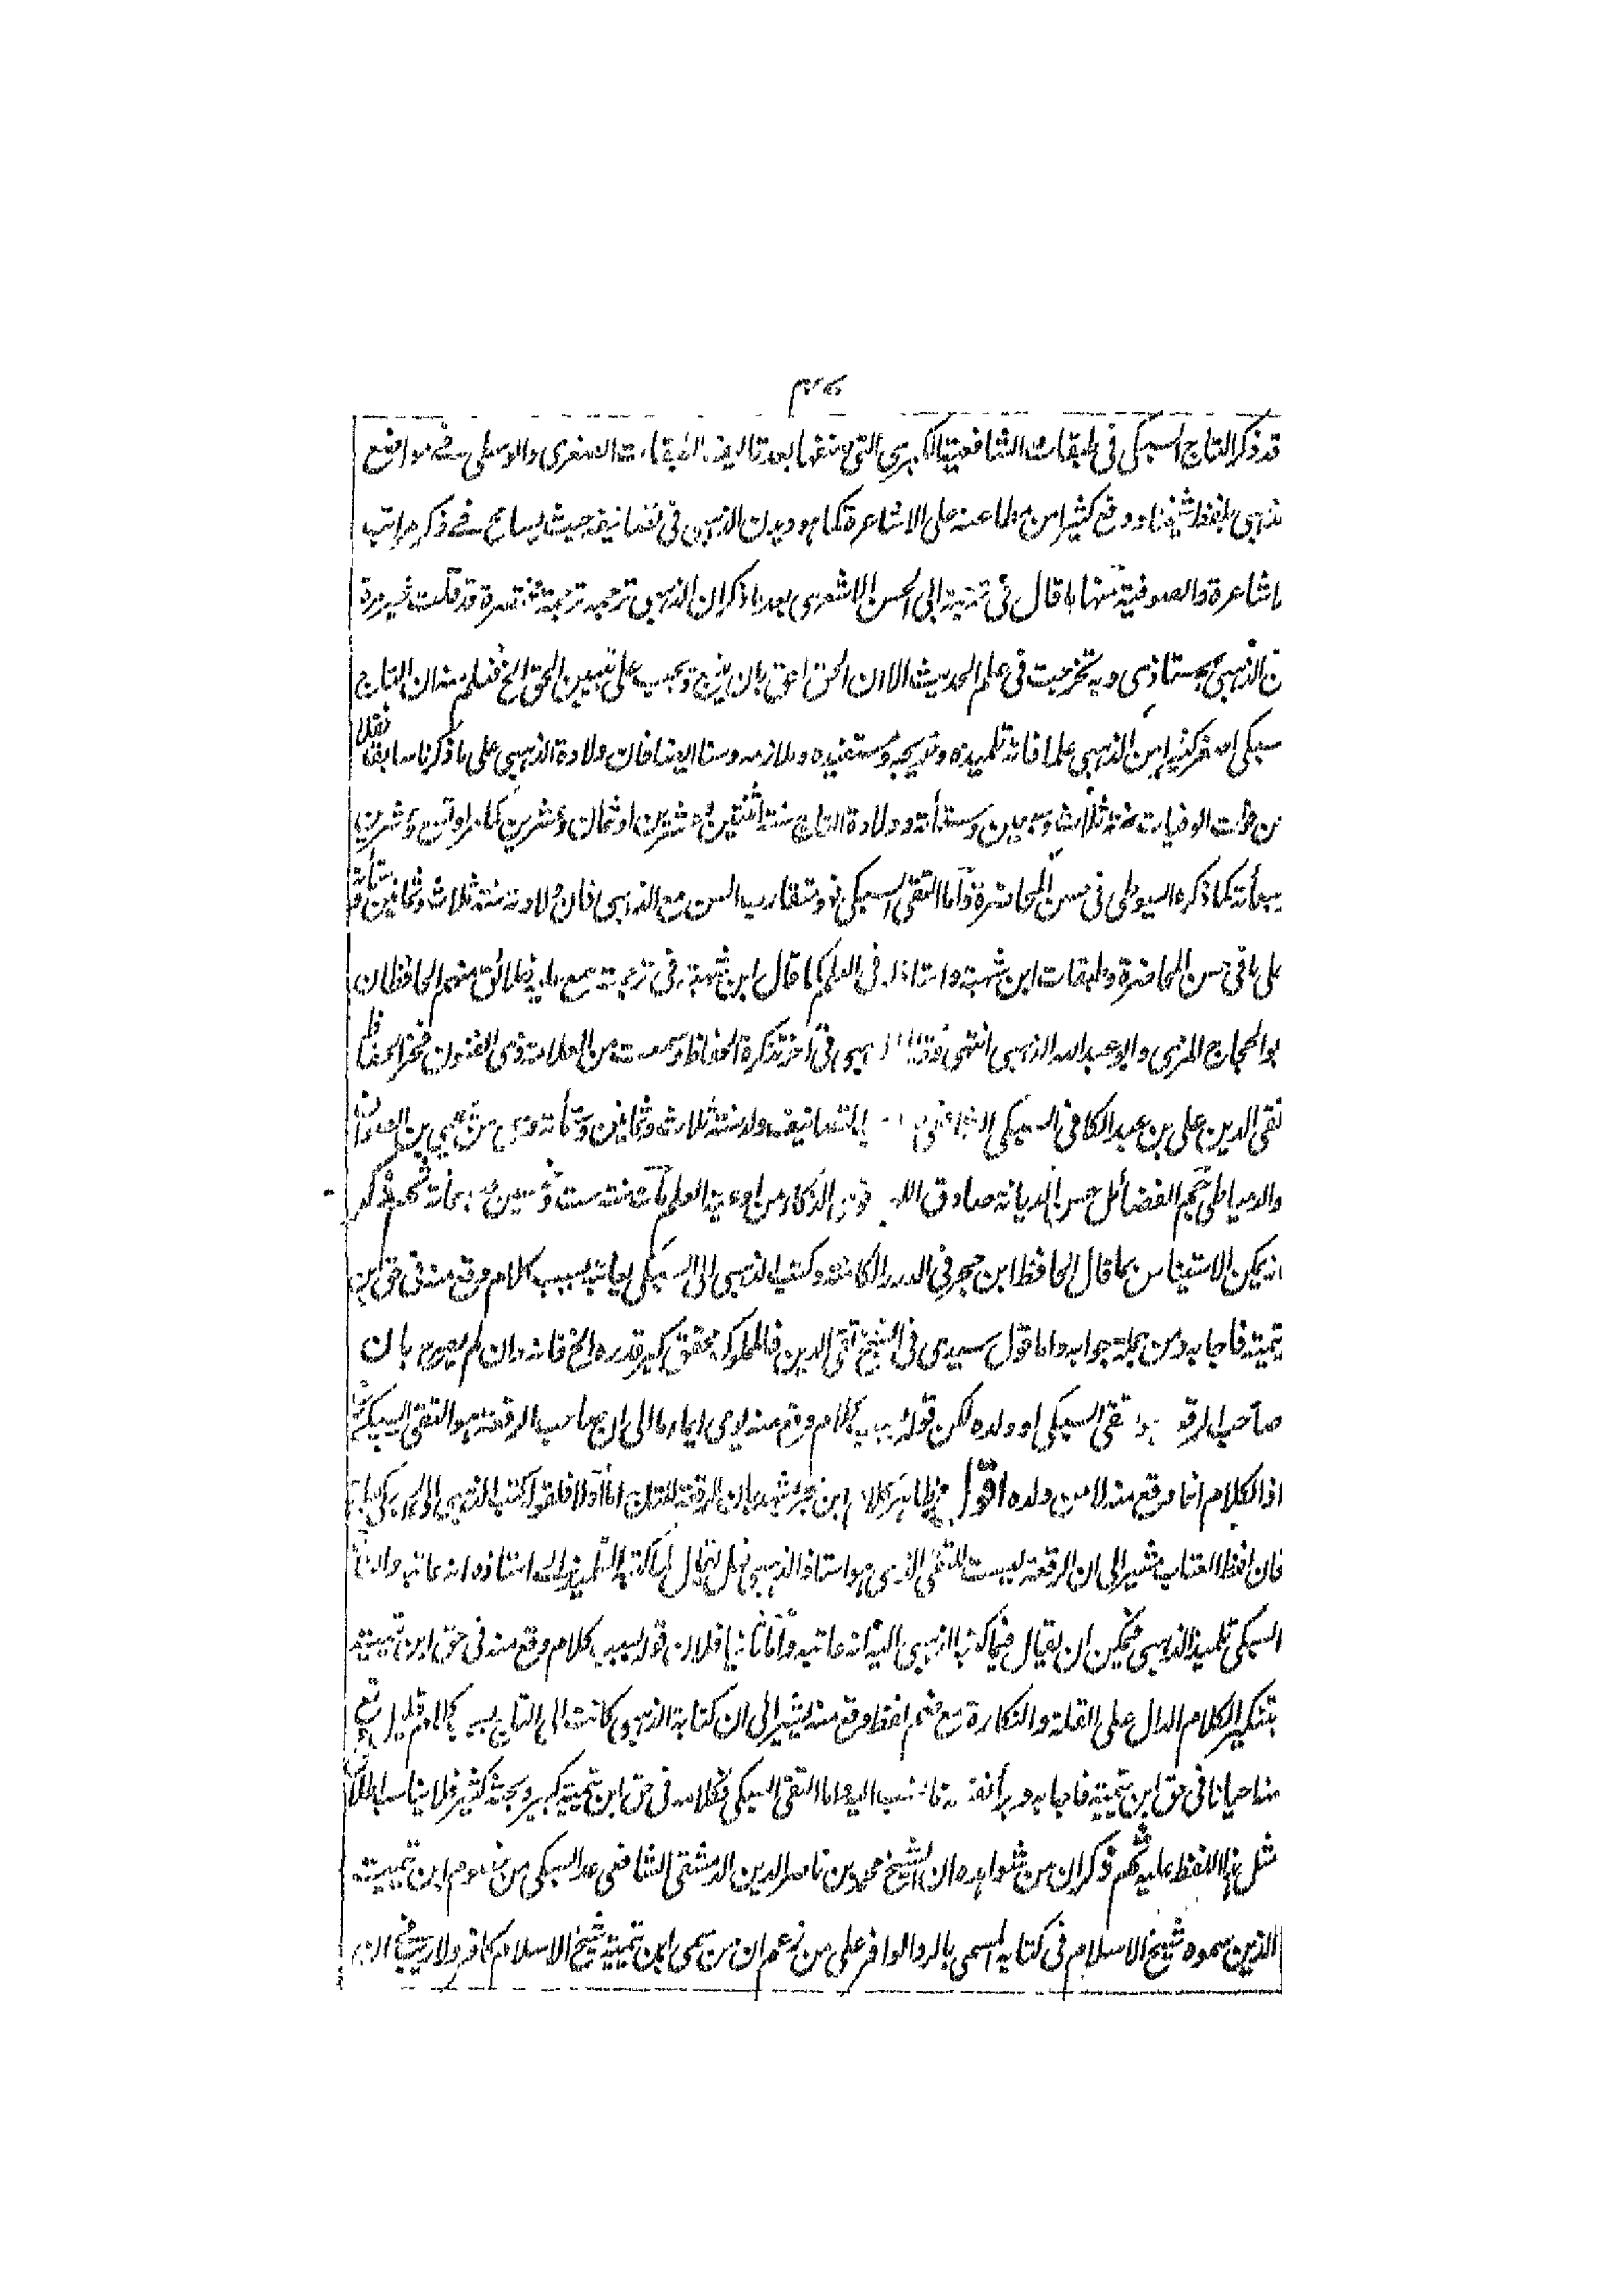 قد ذكر التاج السبكي في طبقات الشافعية الكبرى التي صنفها بعد تاليف الطبقات الصغرى والوسطى في مواضع
ذهبي بلفظ شيخنا ووقع كثيرا من مطاعنه على الاشاعرة كما هو ديدن الذهبي في تصانيفه حيث يسامح في ذكر مراتب
اشاعرة والصوفية منها ما قال في ترجمة ابى الحسن الاشعري بعد ما ذكر ان الذهبي ترجمه ترجمة مختصرة قد قلت غير مرة
ن الذهبي استاذى وبه تخرجت في علم الحديث الا ان الحق احق بان يتبع ويجب على تبيين الحق الخ فعلم منه ان التاج
سبكي اصغر كثيرا من الذهبي علما فانه تلميذه وخريجه ومستفيده وملازمه وسنا ايضا فان ولادة الذهبي على ما ذكرنا سابقا نقلا
من فوات الوفيات سنة ثلاث وسبعين وستمأته وولادة التاج سنة اثنتين وعشرين او ثمان وعشرين كما مر او تسع وعشرين
سبعمأته كما ذكره السيوطى في حسن المحاضرة وأما التقى السبكى فهو متقارب السن مع الذهبى فان ولادته سنة ثلاث وثمانين وستمأته
على ما في حسن المحاضرة وطبقات ابن شهبة واستاذه في العلم كما قال ابن شهبة في ترجمته سمع عليه خلائق منهم الحافظان
بوالحجاج المزى وابو عبدالله الذهبى انتهى وقال الذهبى في آخر تذكرة الحفاظ وسمعت من العلامة ذى الفنون فخر الحفاظ
تقى الدين على بن عبدالكافى السبكى الشافعى التصانيف ولد سنة ثلاث وثمانين وستمأته وسمع من يحيى بن الصواف
والدمياطى جم الفضائل حسن الديانة صادق اللهجة قوى الذكاء من اوعية العلم مات سنة ست وخمسين وسبعمأته ثم ذكر
انه يمكن الاستيناس بما قال الحافظ ابن حجر في الدرر الكامنة وكتب الذهبى الى السبكى يعاتبه بسبب كلام وقع منه في حق ابن
تيمية فاجابه ومن جملة جوابه واما قول سيدى في الشيخ تقى الدين فالمملوك يتحقق كبر قدره الخ فانه وان لم يصرح بان
صاحب الرقعة هو التقى السبكى او ولده لكن قوله بسبب كلام وقع منه يومى ايماء ما الى ان صاحب الرقعة هو التقى السبكى
اذ الكلام انما وقع منه لا من ولده اقول ظاهر كلام ابن حجر يشهد بان الرقعة للتاج اما أولا فلقوله كتب الذهبى الى السبكى
فان لفظ العتاب مشير الى ان الرقعة ليست للتقى الذى هو استاذ الذهبى فهل يقال لما كتبه التلميذ الى استاذه انه عاتبه والتاج
السبكى تلميذ الذهبى فيمكن ان يقال فيما كتبه الذهبى اليه انه عاتبه وأما ثانيا فلان قوله بسبب كلام وقع منه في حق ابن تيمية
بتنكير الكلام الدال على القلة والنكارة مع ضم لفظ وقع منه يشير الى ان كتابة الذهبى كانت الى التاج بسبب كلام قليل وقع
منه احيانا في حق ابن تيمية فاجابه وبرأ نفسه مما نسب اليه واما التقى السبكى فكلامه في حق ابن تيمية كبير وبحثه كثير فلا يناسب اطلاق
مثل هذا اللفظ عليه ثم ذكر ان من شواهده ان الشيخ محمد بن ناصر الدين الدمشقى الشافعى عد السبكى من خصوم ابن تيمية
الذين سموه شيخ الاسلام في كتابه المسمى بالرد الوافر على من زعم ان من سمى ابن تيمية شيخ الاسلام كافر ولا ريب